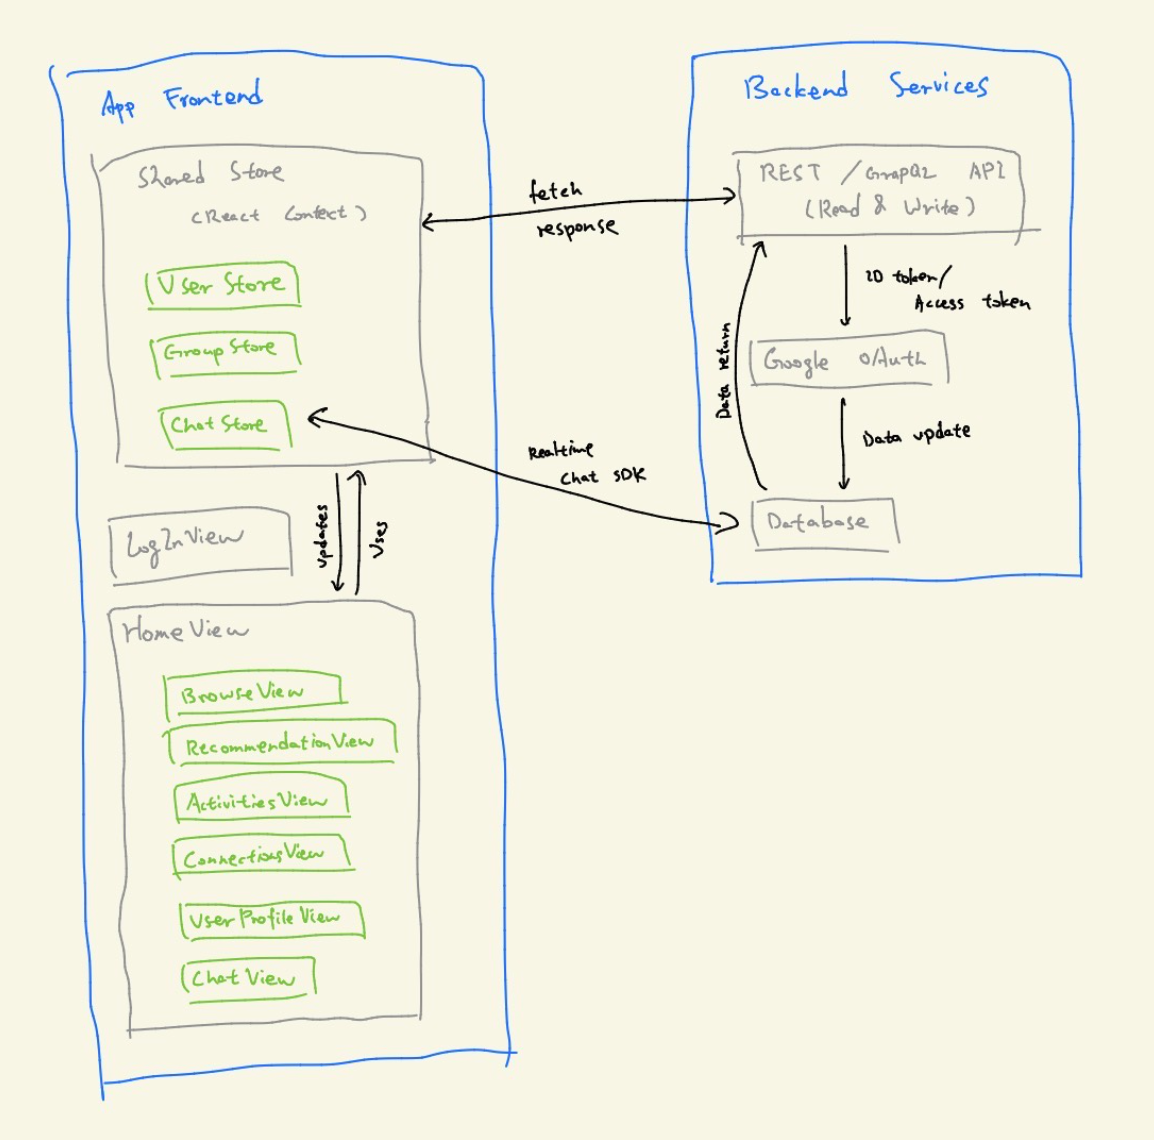 App Frontend
Shared Store
(React Context)
User Store
Group Store
Chat Store
updates
Uses
LogInView
HomeView
BrowseView
RecommendationView
ActivitiesView
ConnectionsView
UserProfileView
ChatView
fetch
response
Realtime
Chat SDK
Backend Services
REST / GrapQL API
(Read & Write)
ID token/
Access token
Google OAuth
Data return
Data update
Database